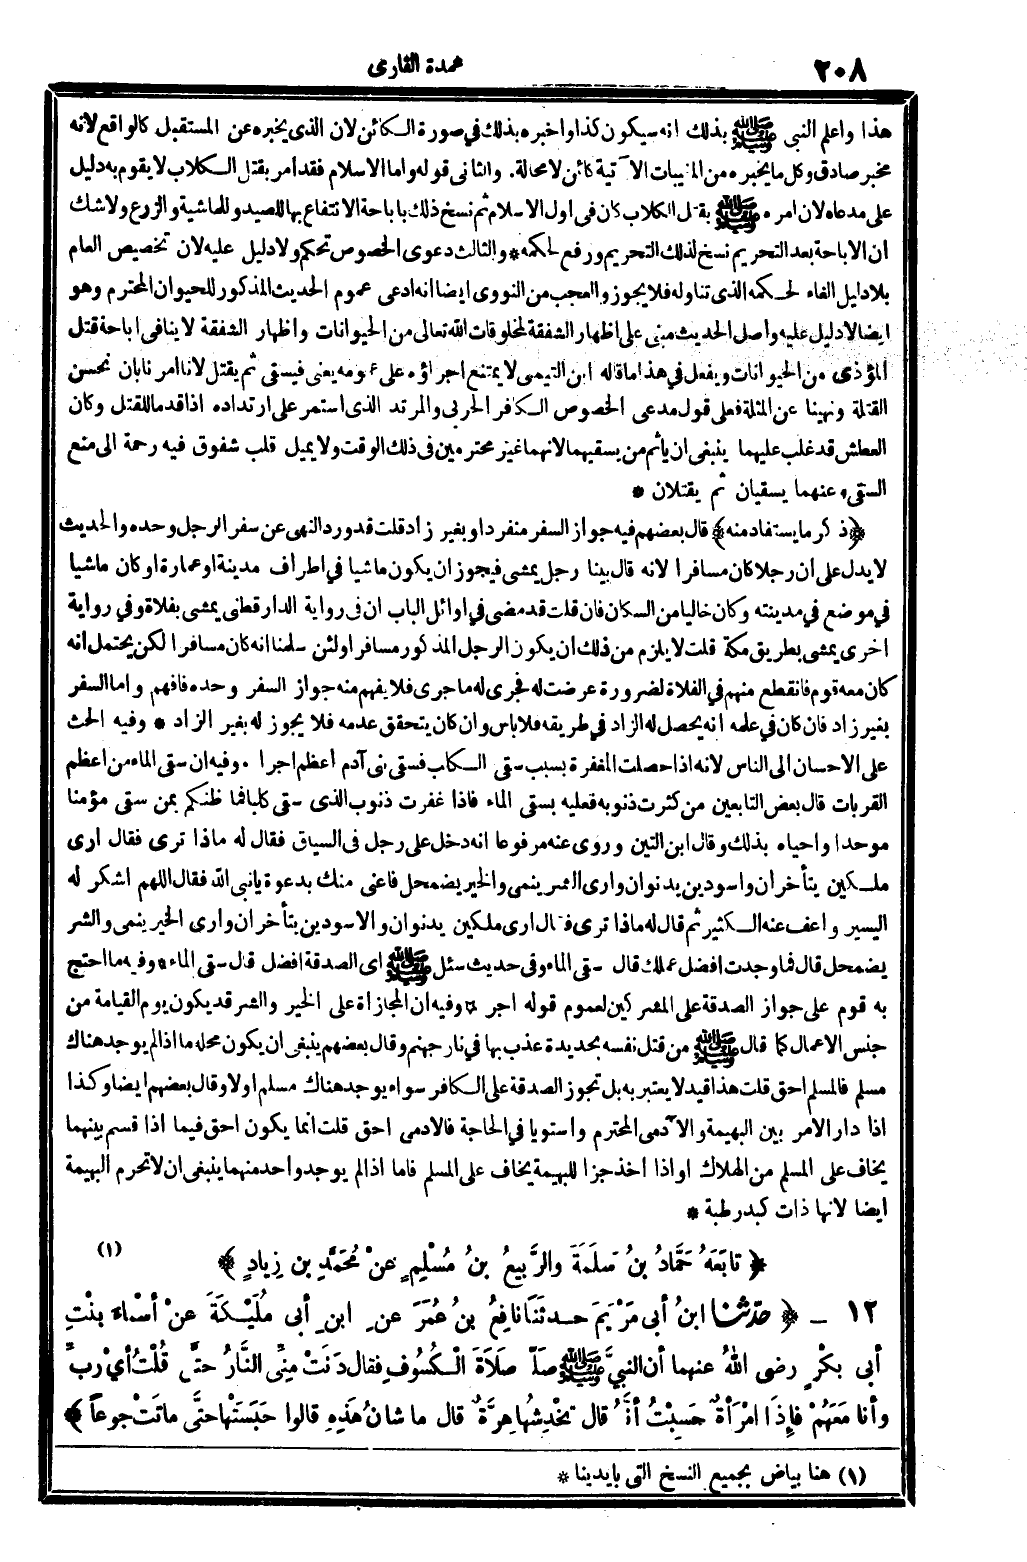 ٢٠٨
عمدة القارى
هذا واعلم النبى ﷺ بذلك انه سيكون كذا واخبره بذلك في صورة الكائن لان الذى يخبره عن المستقبل كالواقع لانه
مخبر صادق وكل ما يخبره من المغيبات الآتية كائن لا محالة. والثانى قوله واما الاسلام فقد امر بقتل الكلاب لا يقوم به دليل
على مدعاه لان امره ﷺ بقتل الكلاب كان فى اول الاسلام ثم نسخ ذلك باباحة الانتفاع بها للصيد وللماشية والزرع ولا شك
ان الاباحة بعد التحريم نسخ لذلك التحريم ورفع لحكمه * والثالث دعوى الخصوص تحكم ولا دليل عليه لان تخصيص العام
بلا دليل الغاء لحكمه الذى تناوله فلا يجوز والعجب من النووى ايضا انه ادعى عموم الحديث المذكور للحيوان المحترم وهو
ايضا لا دليل عليه وأصل الحديث مبنى على اظهار الشفقة لمخلوقات الله تعالى من الحيوانات واظهار الشفقة لا ينافى اباحة قتل
المؤذى من الحيوانات ويفعل في هذا ما قاله ابن التيمى لا يمتنع اجراؤه على عمومه يعنى فيسقى ثم يقتل لانا امرنا بان نحسن
القتلة ونهينا عن المثلة فعلى قول مدعى الخصوص الكافر الحربى والمرتد الذى استمر على ارتداده اذا قدما للقتل وكان
العطش قد غلب عليهما ينبغى ان يأثم من يسقيهما لانهما غير محترمين فى ذلك الوقت ولا يميل قلب شفوق فيه رحمة الى منع
السقى عنهما يسقيان ثم يقتلان *
﴿ذكر ما يستفاد منه﴾ قال بعضهم فيه جواز السفر منفردا وبغير زاد قلت قد ورد النهى عن سفر الرجل وحده والحديث
لا يدل على ان رجلا كان مسافرا لانه قال بينا رجل يمشى فيجوز ان يكون ماشيا في اطراف مدينة او عمارة او كان ماشيا
في موضع في مدينته وكان خاليا من السكان فان قلت قد مضى في اوائل الباب ان فى رواية الدارقطنى يمشى بفلاة وفي رواية
اخرى يمشى بطريق مكة قلت لا يلزم من ذلك ان يكون الرجل المذكور مسافرا ولئن سلمنا انه كان مسافرا لكن يحتمل انه
كان معه قوم فانقطع منهم في الفلاة لضرورة عرضت له فجرى له ما جرى فلا يفهم منه جواز السفر وحده فافهم واما السفر
بغير زاد فان كان في علمه انه يحصل له الزاد في طريقه فلا باس وان كان يتحقق عدمه فلا يجوز له بغير الزاد * وفيه الحث
على الاحسان الى الناس لانه اذا حصلت المغفرة بسبب سقى الكلب فسقى بنى آدم أعظم اجرا . وفيه ان سقى الماء من اعظم
القربات قال بعض التابعين من كثرت ذنوبه فعليه بسقى الماء فاذا غفرت ذنوب الذى سقى كلبا فما ظنكم بمن سقى مؤمنا
موحدا واحياه بذلك وقال ابن التين وروى عنه مرفوعا انه دخل على رجل فى السياق فقال له ماذا ترى فقال ارى
ملكين يتأخران واسودين يدنوان وارى الشر ينمى والخير يضمحل فاعنى منك بدعوة يانبى الله فقال اللهم اشكر له
اليسير واعف عنه الكثير ثم قال له ماذا ترى فقال ارى ملكين يدنوان والاسودين يتأخران وارى الخير ينمى والشر
يضمحل قال فما وجدت افضل عملك قال سقى الماء وفى حديث سئل ﷺ اى الصدقة افضل قال سقى الماء * وفيه ما احتج
به قوم على جواز الصدقة على المشركين لعموم قوله اجر * وفيه ان المجازاة على الخير والشر قد يكون يوم القيامة من
جنس الاعمال كما قال ﷺ من قتل نفسه بحديدة عذب بها في نار جهنم وقال بعضهم ينبغى ان يكون محله ما اذا لم يوجد هناك
مسلم فالمسلم احق قلت هذا قيد لا يعتبر به بل تجوز الصدقة على الكافر سواء يوجد هناك مسلم اولا وقال بعضهم ايضا وكذا
اذا دار الامر بين البهيمة والآدمى المحترم واستويا في الحاجة فالادمى احق قلت انما يكون احق فيما اذا قسم بينهما
يخاف على المسلم من الهلاك او اذا اخذ جزا للبهيمة يخاف على المسلم فاما اذا لم يوجد واحد منهما ينبغى ان لا تحرم البهيمة
ايضا لانها ذات كبد رطبة *
﴿ تَابَعَهُ حَمَّادُ بنُ سَلَمَةَ والرَّبِيعُ بنُ مُسْلِمٍ عنْ مُحَمَّدِ بن زِيادٍ ﴾ (١)
١٢ - ﴿ حدّثنا ابنُ أبى مَرْيَمَ حدثَنَا نافِعُ بنُ عُمَرَ عنِ ابنِ أبى مُلَيْكَةَ عنْ أسْماءَ بنْتِ
أبى بكْرٍ رضى اللهُ عنهما أن النبيَّ ﷺ صَلَّى صَلَاةَ الْكُسُوفِ فقال دَنَتْ مِنِّى النَّارُ حتَّى قُلْتُ أىْ ربِّ
وأنا مَعَهُمْ فإِذَا امْرَأةٌ حَسِبْتُ أنَّهُ قال تَخْدِشُها هِرَّةٌ قال ما شانُ هَذِهِ قالوا حَبَسَتْها حتَّى ماتَتْ جوعاً ﴾
(١) هنا بياض بجميع النسخ التى بايدينا *